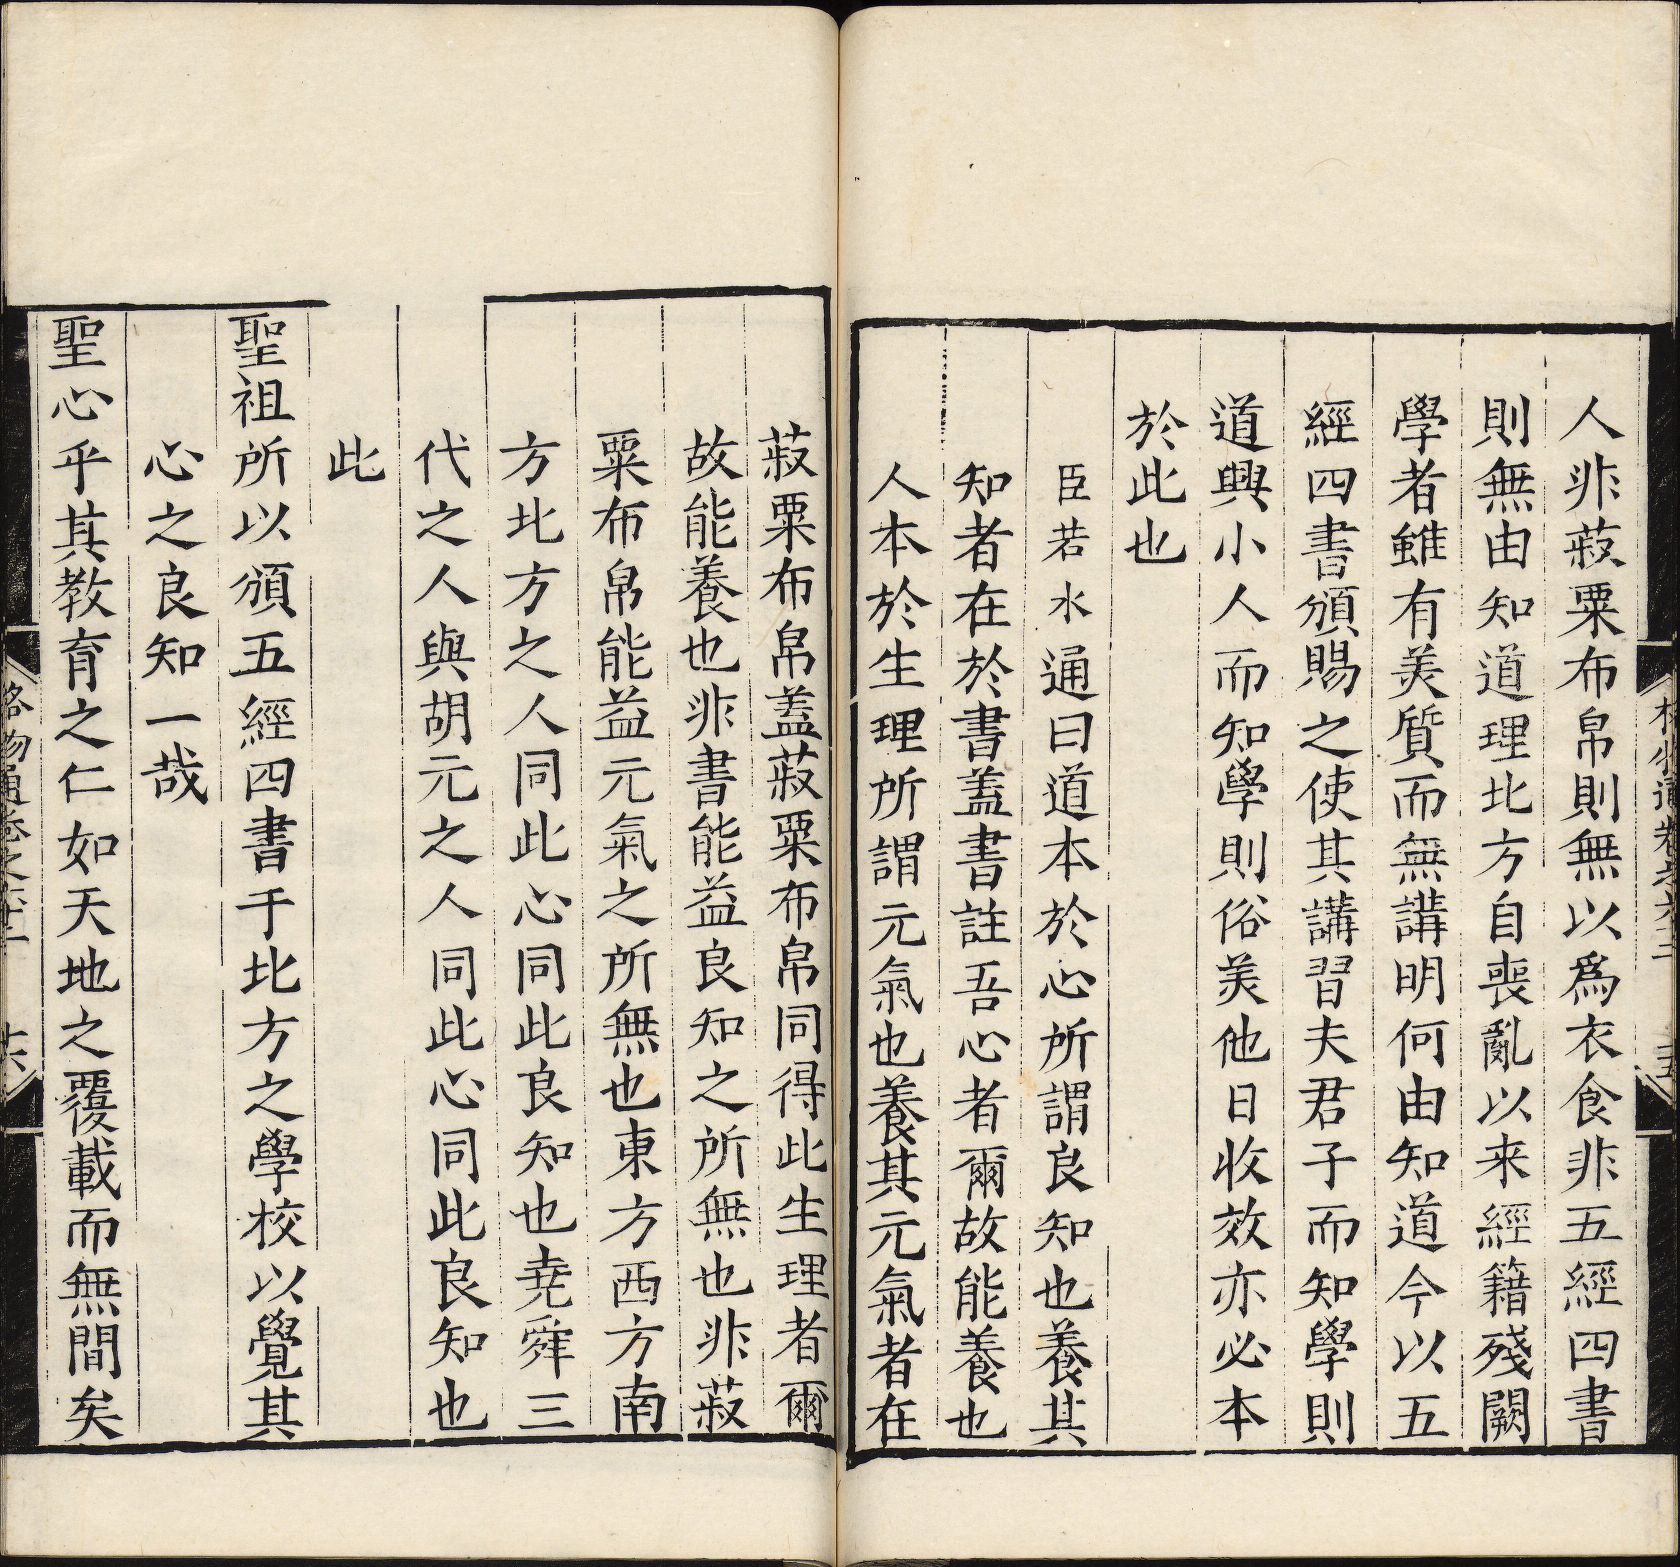 人非菽粟布帛則無以爲衣食非五經四書
則無由知道理北方自喪亂以来經籍殘闕
學者雖有美質而無講明何由知道今以五
經四書頒賜之使其講習夫君子而知學則
道興小人而知學則俗美他日收效亦必本
於此也
臣若水通曰道本於心所謂良知也養其
知者在於書蓋書註吾心者爾故能養也
人本於生理所謂元氣也養其元氣者在
菽粟布帛蓋菽粟布帛同得此生理者爾
故能養也非書能益良知之所無也非菽
粟布帛能益元氣之所無也東方西方南
方北方之人同此心同此良知也堯舜三
代之人與胡元之人同此心同此良知也
此
聖祖所以頒五經四書于北方之學校以覺其
心之良知一哉
聖心乎其教育之仁如天地之覆載而無間矣